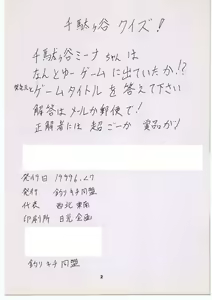 千駄ヶ谷 クイズ!
千駄ヶ谷ミーナ ちゃん は
なんとゆーゲームに出ていたか!?
ゲームタイトル を 答えて下さい
解答は メールか郵便で!
正解者には 超ごーか 賞品が!
発行日 1999 6.27
発行 釣りキチ同盟
代表 西北 東南
印刷所 日光企画
釣りキチ同盟